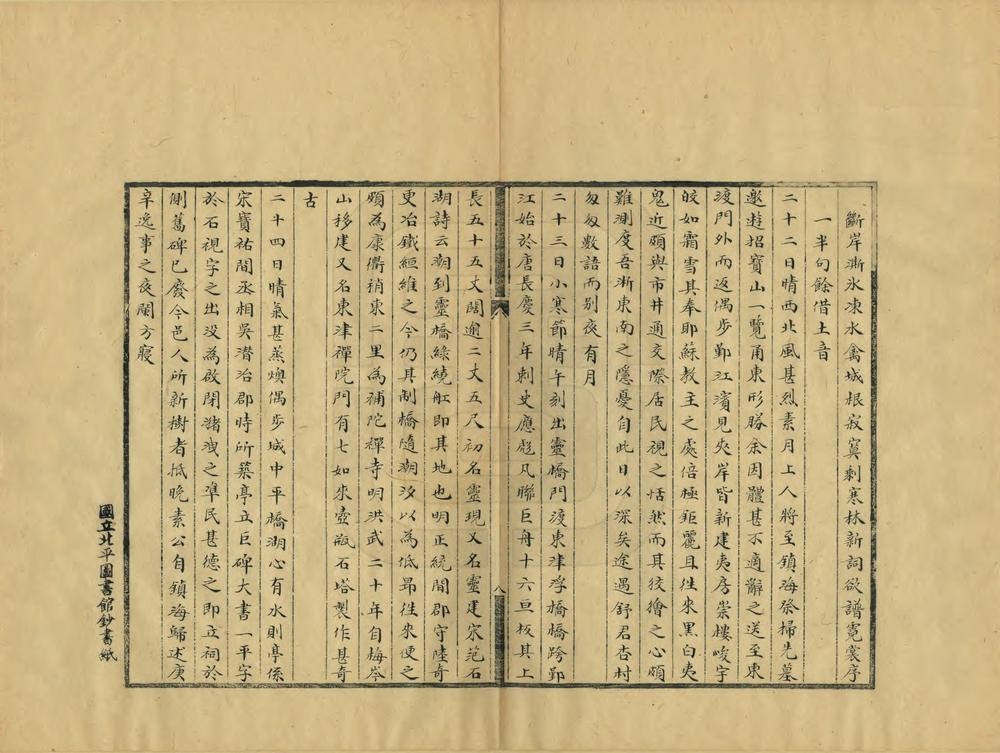 斷岸澌氷凍水禽城根寂寞剩寒林新詞欲譜霓裳序
一半句餘借土音
二十二日晴西北風甚烈素月上人將至鎮海祭掃先墓
邀遊招寶山一覽甬東形勝余因體甚不適辭之送至東
渡門外而返偶步鄞江濱見夾岸皆新建夷房崇樓峻宇
皎如霜雪其奉耶蘇教主之處倍極鉅麗且徃來黑白夷
鬼近頗與市井通交際居民視之恬然而其狡獪之心頗
難測度吾浙東南之隱憂自此日以深矣途遇舒君杏村
匆匆數語而別夜有月
二十三日小寒節晴午刻出靈橋門渡東津浮橋橋跨鄞
江始於唐長慶三年刺史應彪凡聯巨舟十六亘板其上
長五十五丈闊逾二丈五尺初名靈現又名靈建宋范石
湖詩云潮到靈橋綠繞舡即其地也明正統間郡守陸奇
更冶鐵絙維之今仍其制橋隨潮汐以為低昻徃來便之
頗為康衢稍東二里為補陀禪寺明洪武二十年自梅岑
山移建又名東津禪院門有七如來壺瓶石塔製作甚奇
古
二十四日晴氣甚蒸燠偶步城中平橋湖心有水則亭係
宋寶祐間丞相吳潛治郡時所築亭立巨碑大書一平字
於石視字之出沒為啟閉潴洩之準民甚德之即立祠於
側舊碑已廢今邑人所新樹者抵晚素公自鎮海歸述庚
辛逸事之夜闌方寢
八
國立北平圖書館鈔書紙